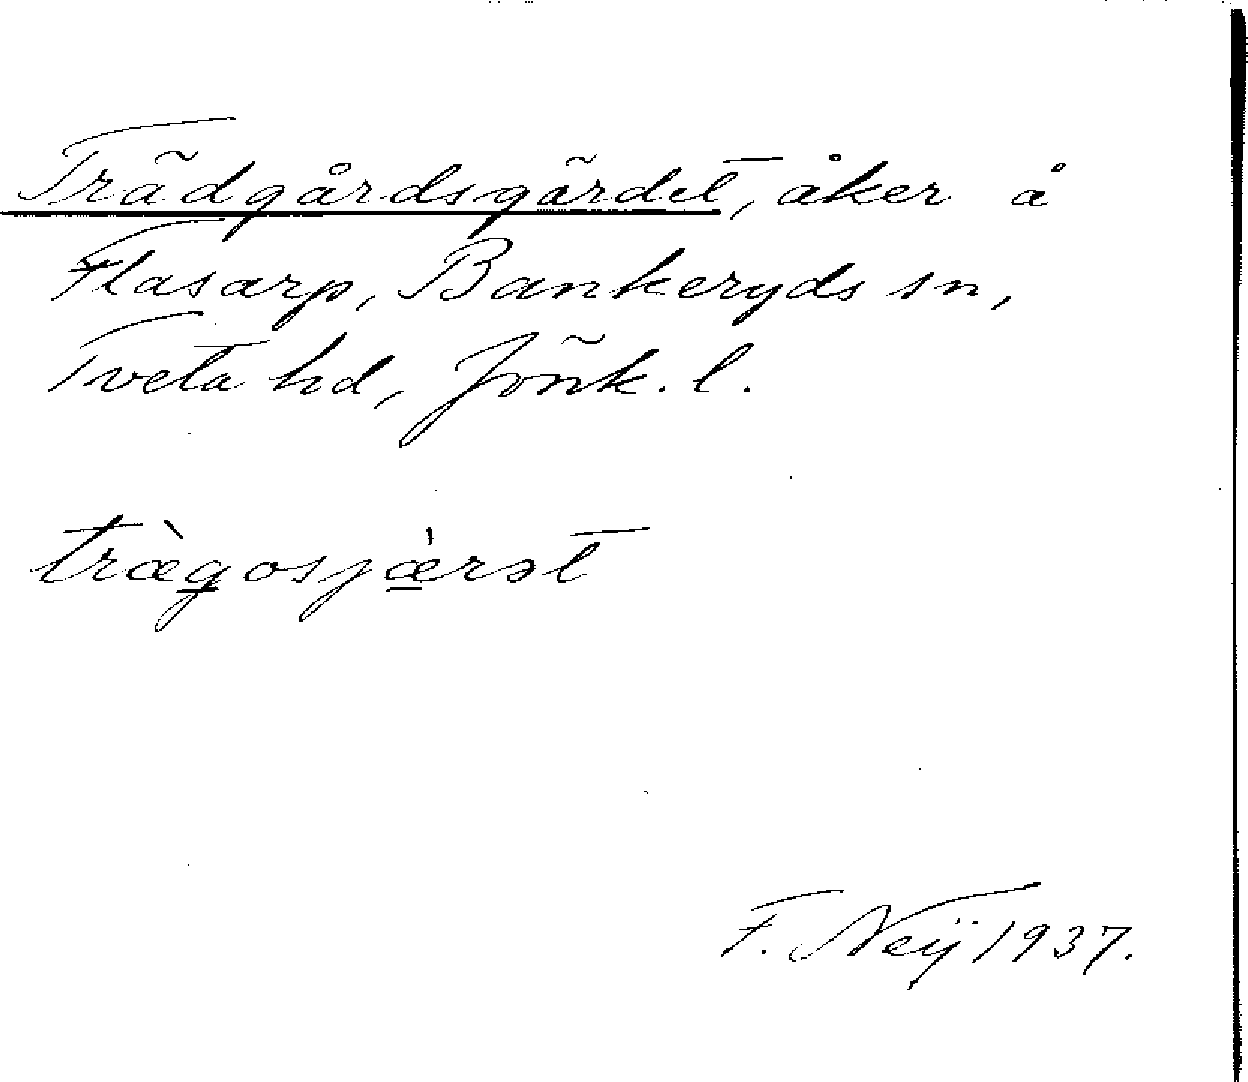 Trädgårdsgärdet, åker å
Flasarp, Bankeryds sn,
Tveta hd, Jönk. l.
træ̀gosjæ̍rət
F. Neij 1937.